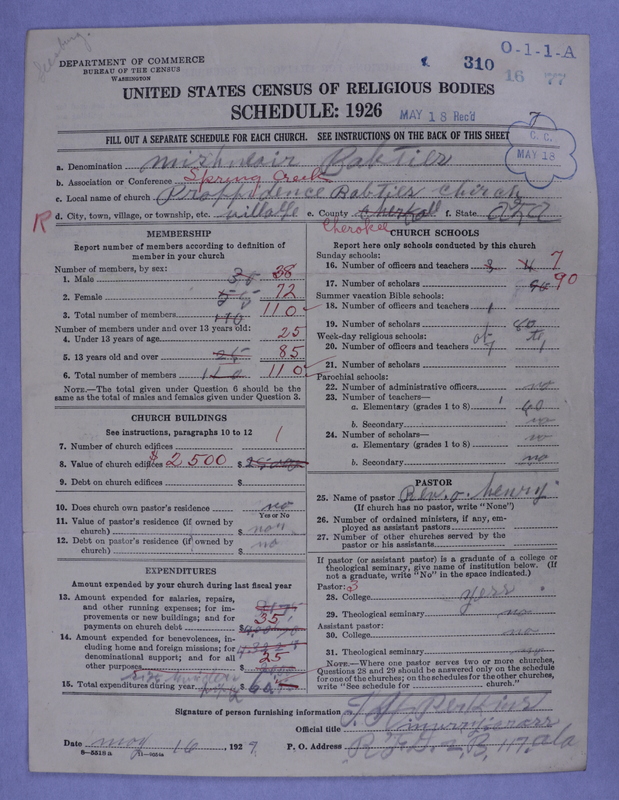 Leesburg.
DEPARTMENT OF COMMERCE
BUREAU OF THE CENSUS
WASHINGTON
310
O-1-1-A
16 77
UNITED STATES CENSUS OF RELIGIOUS BODIES
SCHEDULE: 1926
MAY 18 Rec'd
FILL OUT A SEPARATE SCHEDULE FOR EACH CHURCH. SEE INSTRUCTIONS ON THE BACK OF THIS SHEET
C. C.
MAY 18
a. Denomination
b. Association or Conference Spring Creek
c. Local name of church Babties Church
R
d. City, town, village, or township, etc. village e. County Cherokee f. State ala
MEMBERSHIP
Report number of members according to definition of member in your church
Number of members, by sex:
1. Male 38
2. Female 72
3. Total number of members 110
Number of members under and over 13 years old:
4. Under 13 years of age 25
5. 13 years old and over 85
6. Total number of members 110
NOTE.—The total given under Question 6 should be the same as the total of males and females given under Question 3.
CHURCH BUILDINGS
See instructions, paragraphs 10 to 12
7. Number of church edifices 1
8. Value of church edifices $2500 $
9. Debt on church edifices $
10. Does church own pastor's residence no
Yes or No
11. Value of pastor's residence (if owned by church) $
12. Debt on pastor's residence (if owned by church) $ no
EXPENDITURES
Amount expended by your church during last fiscal year
13. Amount expended for salaries, repairs, and other running expenses; for improvements or new buildings; and for payments on church debt $ 35
14. Amount expended for benevolences, including home and foreign missions; for denominational support; and for all other purposes 25
15. Total expenditures during year 60
CHURCH SCHOOLS
Report here only schools conducted by this church
Sunday schools:
16. Number of officers and teachers 7
17. Number of scholars 90
Summer vacation Bible schools:
18. Number of officers and teachers 1
19. Number of scholars 80
Week-day religious schools:
20. Number of officers and teachers
21. Number of scholars
Parochial schools:
22. Number of administrative officers no
23. Number of teachers—
a. Elementary (grades 1 to 8) 60
b. Secondary no
24. Number of scholars—
a. Elementary (grades 1 to 8) no
b. Secondary no
PASTOR
25. Name of pastor Rev. O. Henry
(If church has no pastor, write "None")
26. Number of ordained ministers, if any, employed as assistant pastors
27. Number of other churches served by the pastor or his assistants
If pastor (or assistant pastor) is a graduate of a college or theological seminary, give name of institution below. (If not a graduate, write "No" in the space indicated.)
Pastor: 3
28. College yess
29. Theological seminary no
Assistant pastor:
30. College no
31. Theological seminary no
NOTE.—Where one pastor serves two or more churches, Questions 28 and 29 should be answered only on the schedule for one of the churches; on the schedules for the other churches, write "See schedule for church."
Signature of person furnishing information Perkins
Official title
Date may 16 1927 P. O. Address R.F.D. 2 B. 117, ala
8—5518 a 11—10544